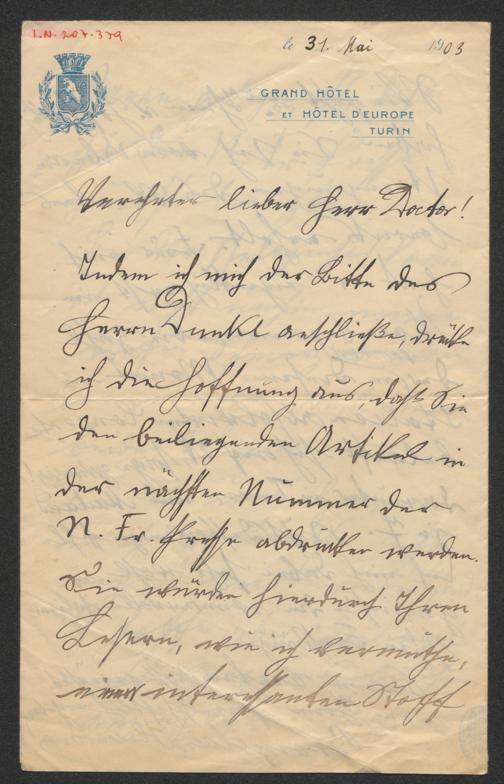 I.N. 207.379
le 31. Mai 1903
GRAND HÔTEL
ET HÔTEL D'EUROPE
TURIN
Verehrter lieber Herr Doctor!
Indem ich mich der Bitte des
Herrn Dunkl anschließe, drücke
ich die Hoffnung aus, daß Sie
den beiliegenden Artikel in
der nächsten Nummer der
N. Fr. Presse abdrucken werden.
Sie würden hierdurch Ihren
Lesern, wie ich vermuthe,
einen interessanten Stoff